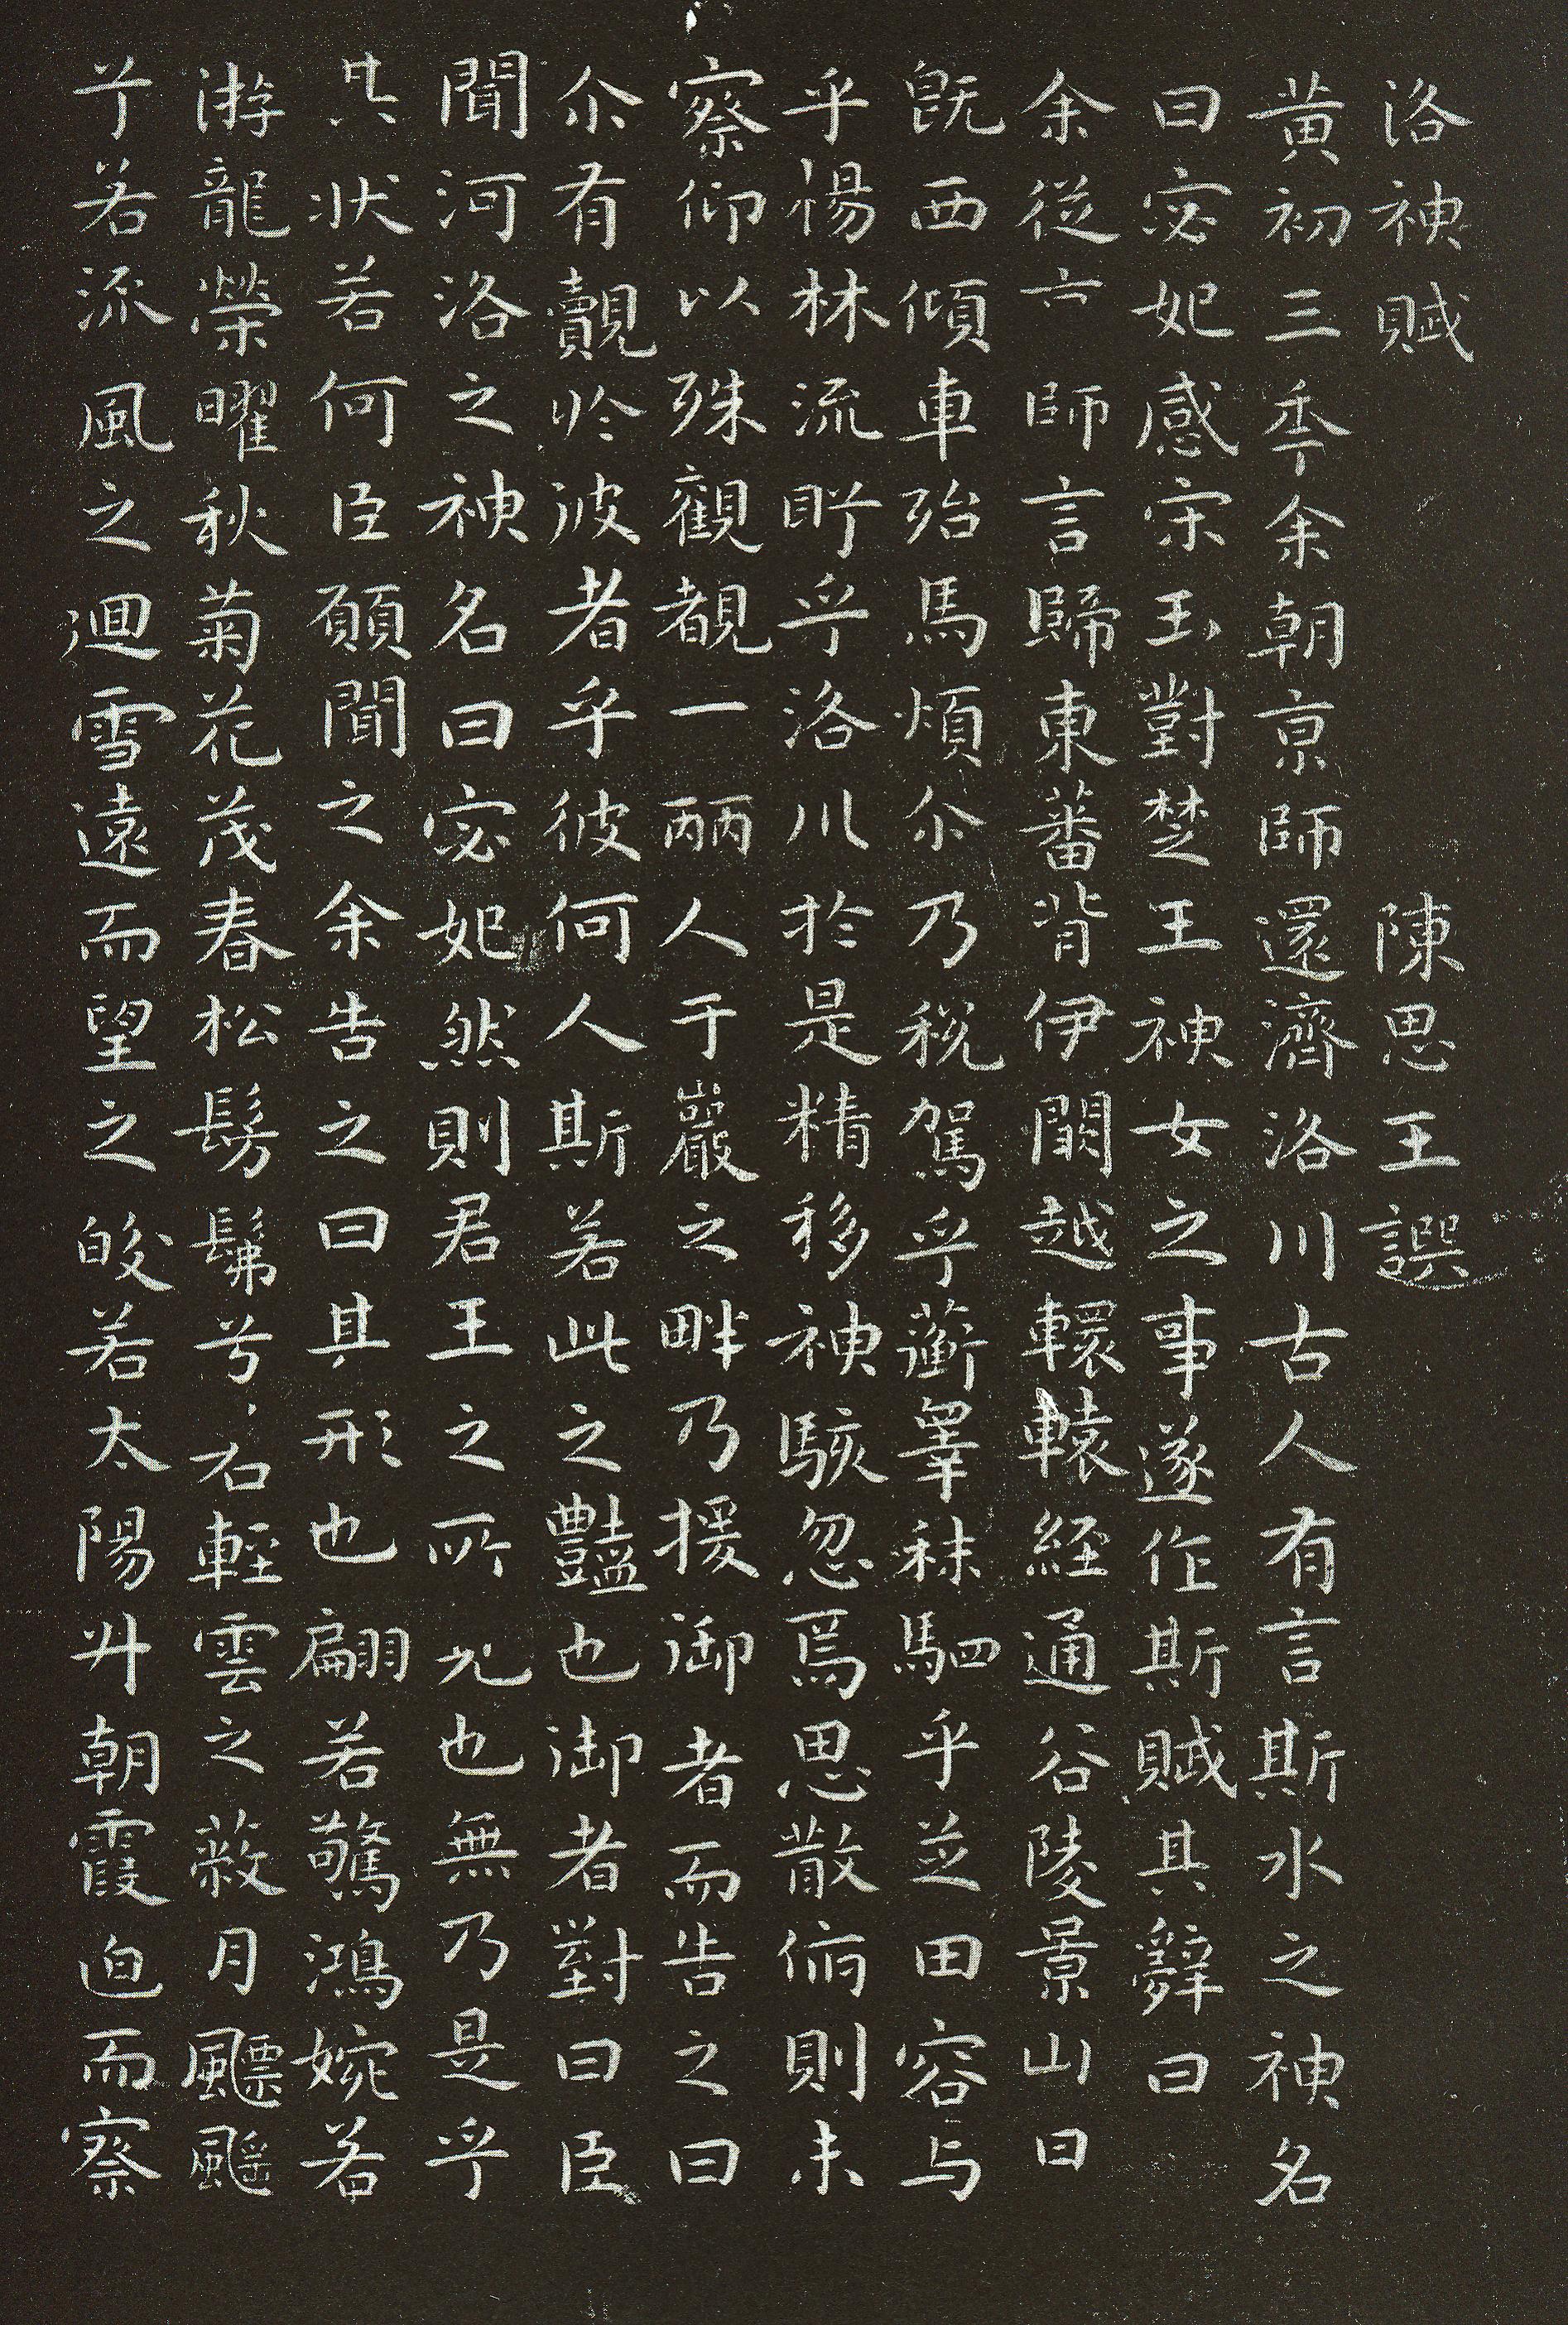 洛神賦 陳思王譔
黄初三秊余朝京師還濟洛川古人有言斯水之神名
曰宓妃感宋玉對楚王神女之事遂作斯賦其辭曰
余從京師言歸東蕃背伊闕越轘轅經通谷陵景山日
既西傾車殆馬煩尒乃税駕乎蘅睾秣駟乎芝田容与
乎楊林流眄乎洛川於是精移神駭忽焉思散俯則未
察仰以殊觀覩一麗人于巖之畔乃援御者而告之曰
尒有覿於彼者乎彼何人斯若此之豔也御者對曰臣
聞河洛之神名曰宓妃然則君王之所見也無乃是乎
其状若何臣願聞之余告之曰其形也翩若驚鴻婉若
游龍榮曜秋菊花茂春松髣髴兮若輕雲之蔽月飄颻
兮若流風之迴雪遠而望之皎若太陽升朝霞迫而察